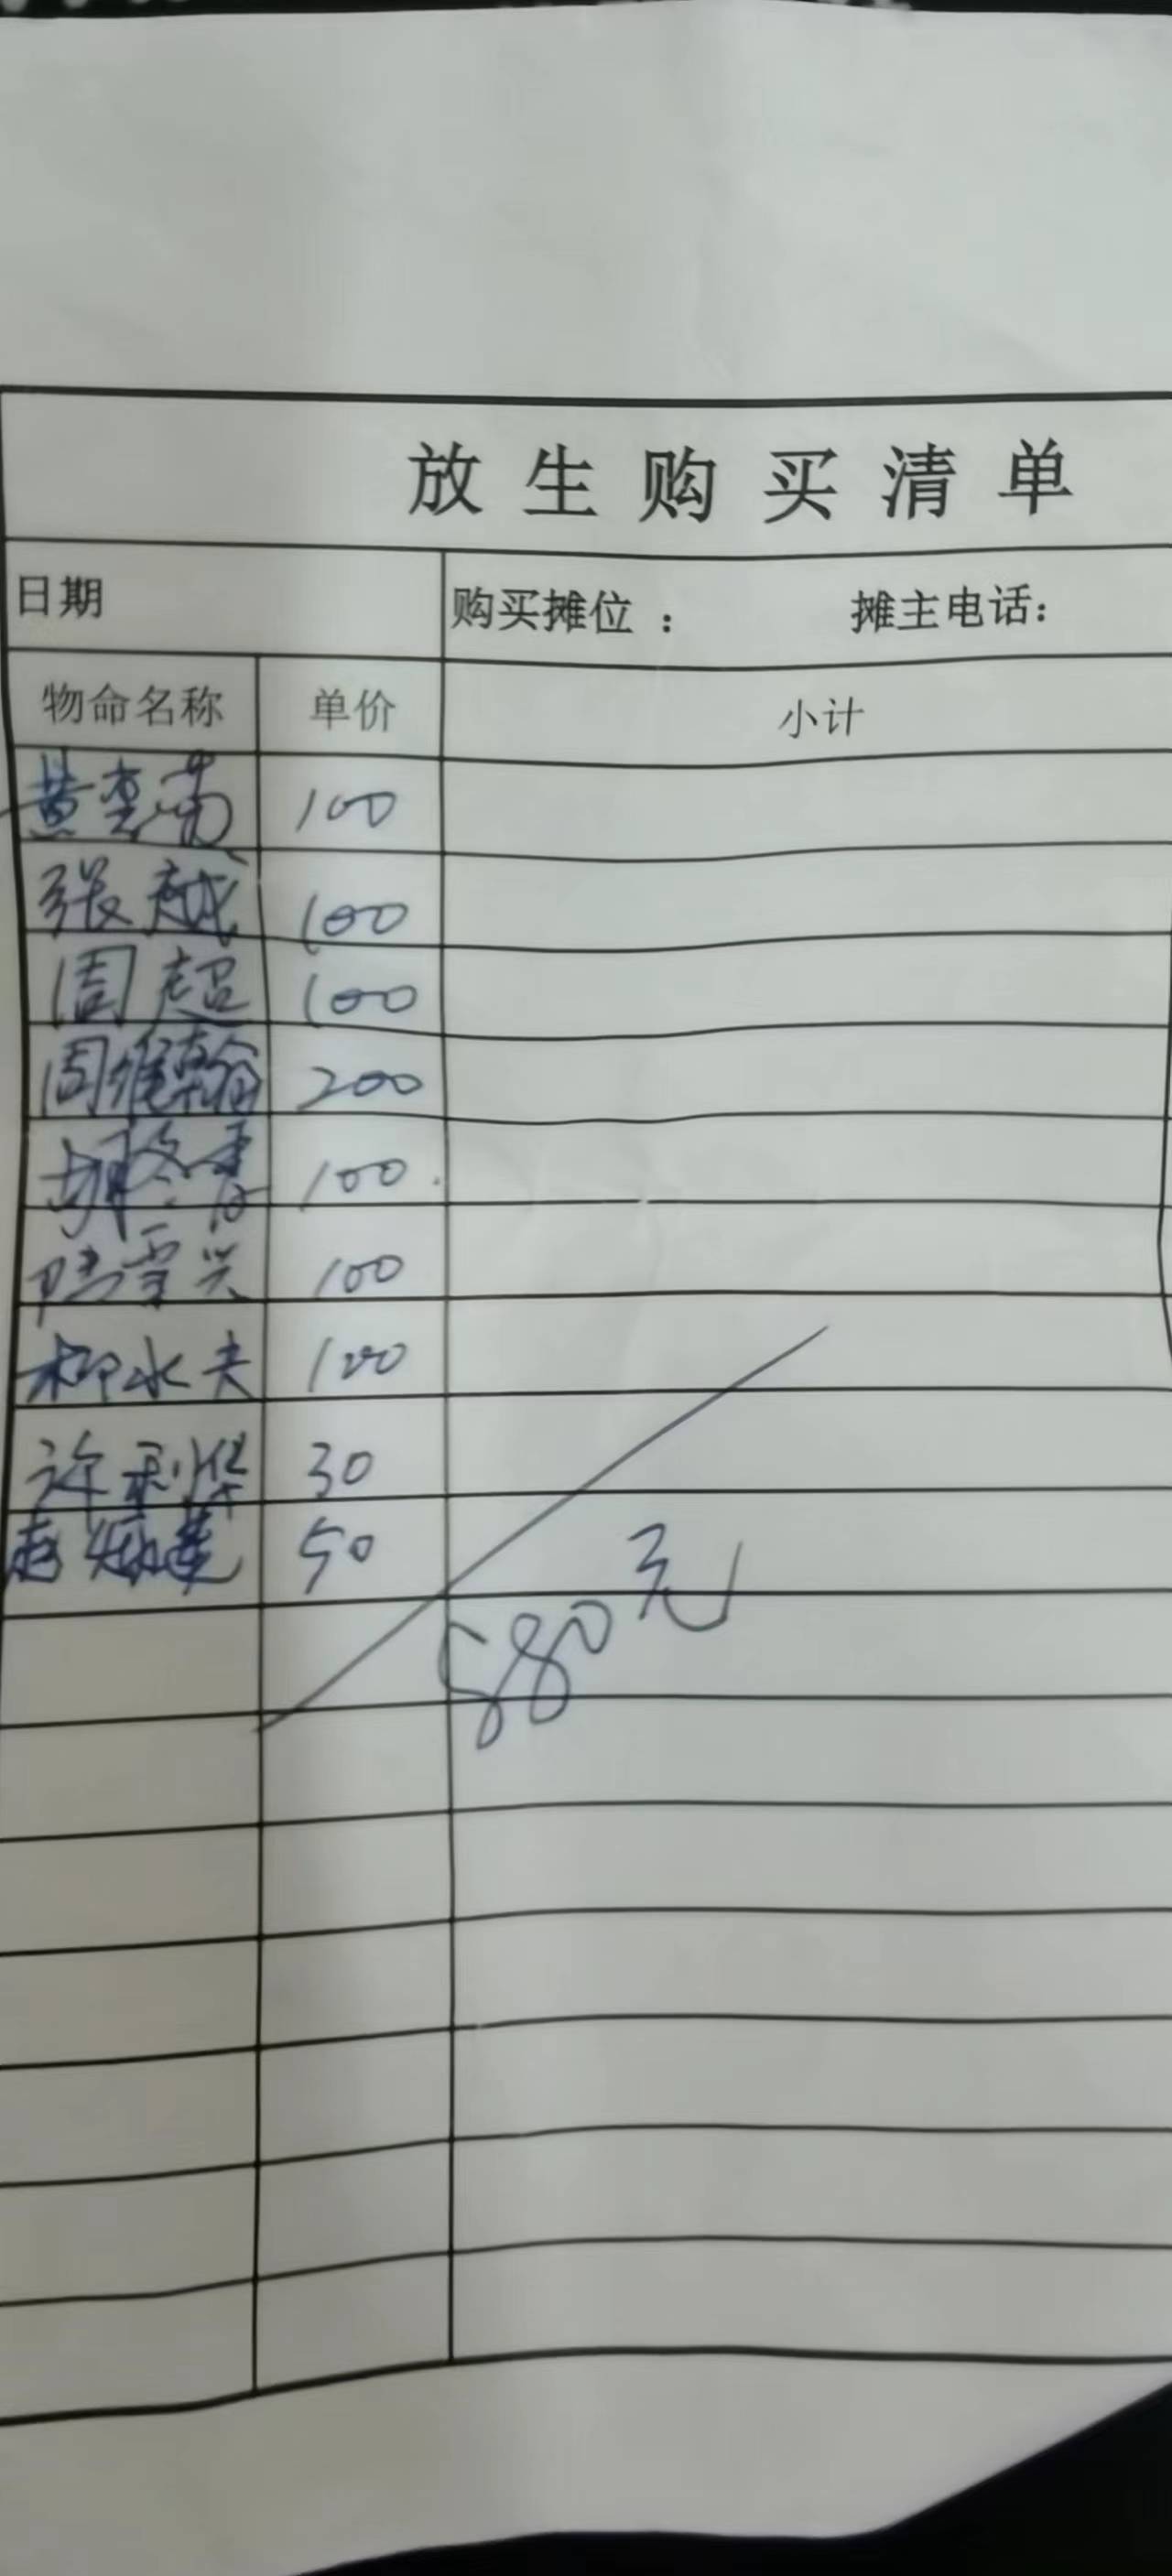 放生购买清单
日期 购买摊位： 摊主电话：
物命名称 单价 小计
黄 100
张越 100
周超 100
周维翰 200
胡冬香 100
陆雪兴 100
柳水夫 100
许利华 30
赵 50
580元